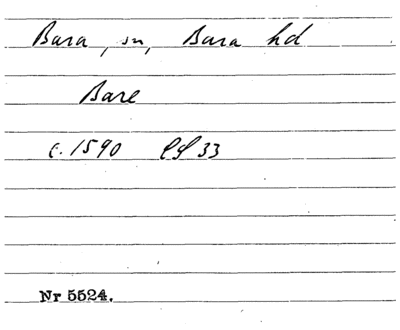 Bara, sn, Bara hd
Bare
c. 1590 33
Nr 5524.